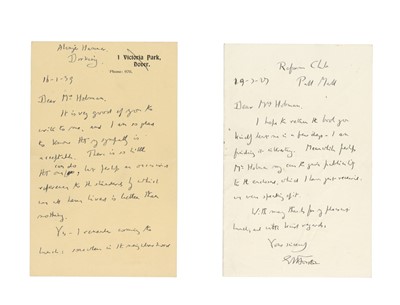 Abinger Hammer,
Dorking
1 Victoria Park,
Dover.
16-1-39
Dear Mrs Holman,
It is very good of you to
write to me, and I am so glad
to know that my sympathy is
acceptable. There is so little
that one can do but perhaps an occasional
reference to the standard by which
one has been lived is better than
nothing.
Yes - I remember coming to
lunch: somewhere in the neighbourhood
Reform Club
Pall Mall
29-3-37
Dear Mrs Holman,
I hope to return the book you
kindly lent me in a few days. I am
finding it interesting. Meanwhile perhaps
Mr Holman may care to give publicity
to the enclosed, which I have just received.
we were speaking of it.
With many thanks for my pleasant
lunch, and with kind regards
Yours sincerely
EMForster